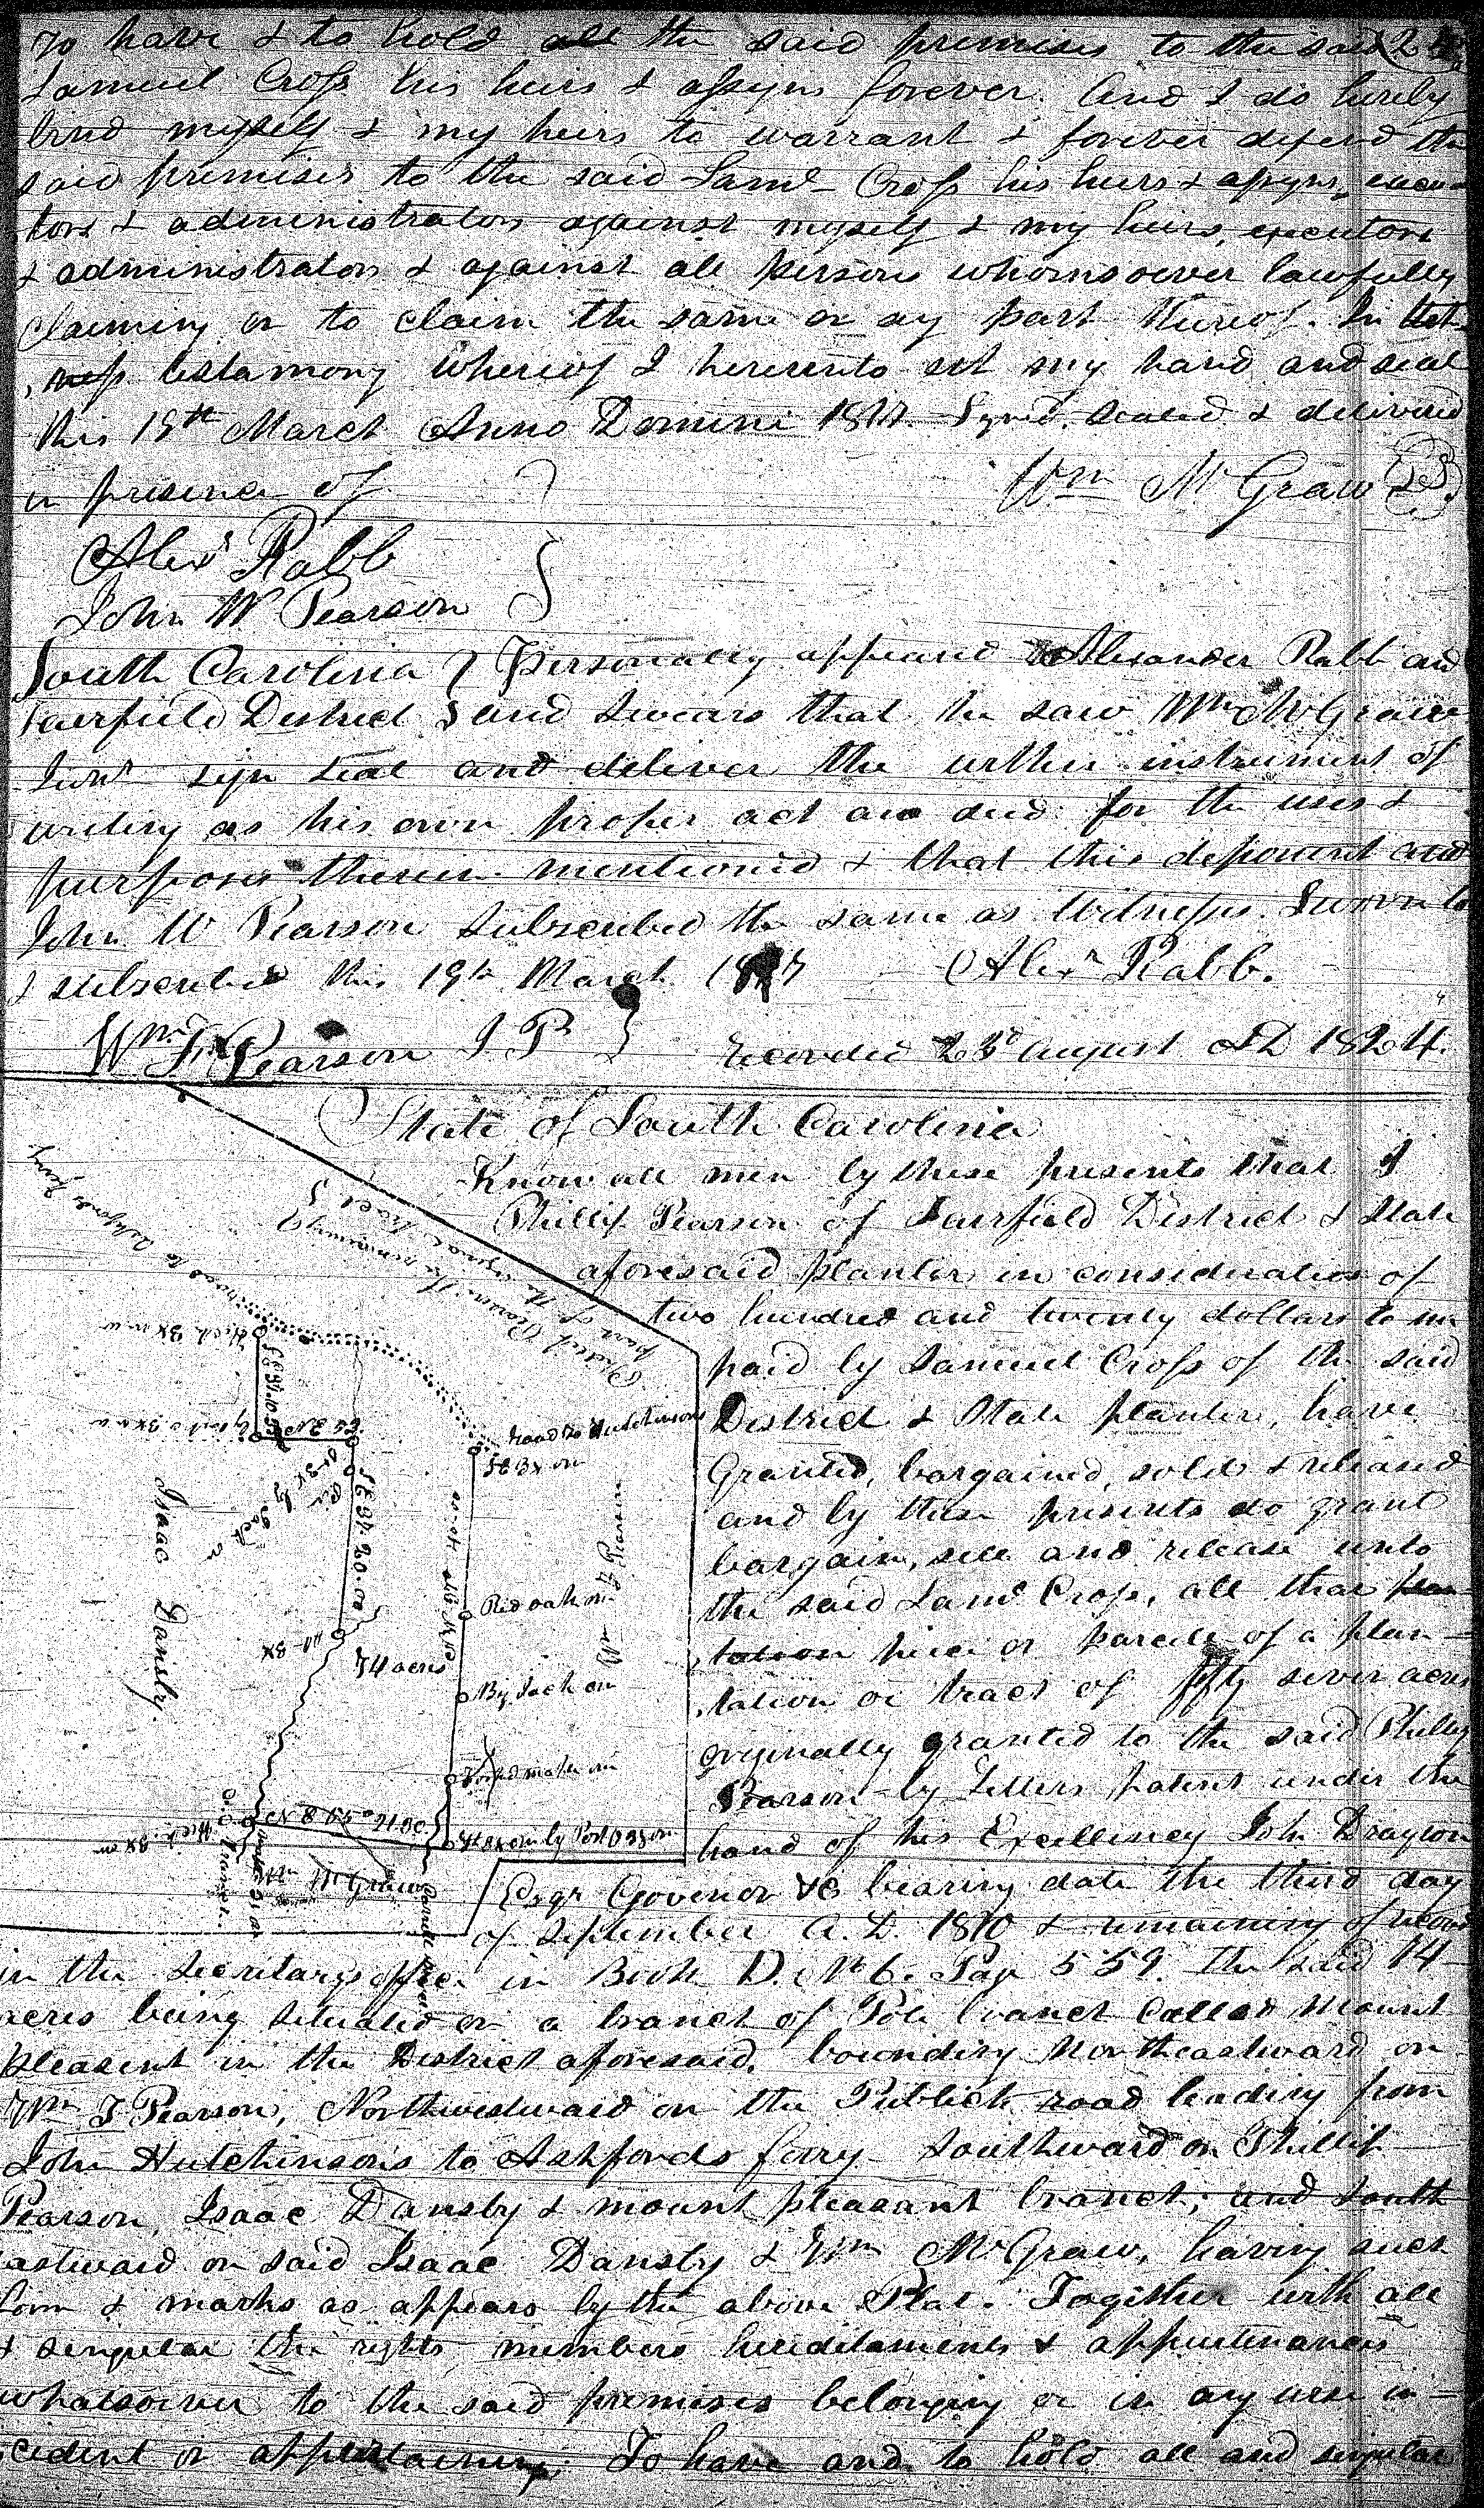 To have & to hold all the said premises to the said
Samuel Cross his heirs & assigns forever. And I do hereby
bind myself & my heirs to warrant & forever defend the
said premises to the said Saml Cross his heirs & assigns, execu-
tors & administrators against myself & my heirs, executors
& administrators & against all persons whomsoever lawfully
claiming or to claim the same or any part thereof. In
testamony whereof I hereunto set my hand and seal
this 19th March Anno Domini Signed, sealed & delivered
in presence of Wm McGraw LS
Alexr Rabb
John W Pearson
South Carolina } Personally appeared Alexander Rabb and
Fairfield District } and swears that he saw Wm McGraw
Junr sign seal and deliver the within instrument of
writing as his own proper act and deed for the uses &
purposes therein mentioned & that this deponent and
John W Pearson subscribed the same as Witnesses. Sworn to
& subscribed this 19th March Alexr Rabb.
Wm F Pearson J P } Recorded 23d August AD 1824.
State of South Carolina
Know all men by these presents that I
Phillip Pearson of Fairfield District & State
aforesaid planter in consideration of
two hundred and twenty dollars to me
paid by Samuel Cross of the said
District & State planter, have
Granted, bargained, sold & released
and by these presents do grant
bargain, sell and release unto
the said Saml Cross, all that plan-
tation piece or parcell of a plan-
tation or tract of fifty seven acres
originally granted to the said Phillip
Pearson by Letters patent under the
hand of his Excellency John Drayton
Esqr Govenor &c bearing date the third day
of September A.D. 1810 & remaining of record
in the Secritarys office in Book D. No 6. Page 559. The said 74
acres being situated on a branch of Pole branch called Mount
pleasent in the District aforesaid, bounding Northeastward on
Wm F Pearson, Northwestward on the Publick road leading from
John Hutchinson's to Ashfords ferry Southward on Phillip
Pearson, Isaac Dansby & mount pleasant branch; and South
eastward on said Isaac Dansby & Wm McGraw, having such
form & marks as appears by the above Plat. Together with all
& singular the rights, members hereditaments & appurtenances
whatsoever to the said premises belonging or in any wise in-
cident or appertaining. To have and to hold all and singular
road to Ashfords ferry
Road to Hutchinsons
Isaac Dansby.
Wm F Pearson
Red oak
74 acres
Wm McGraw